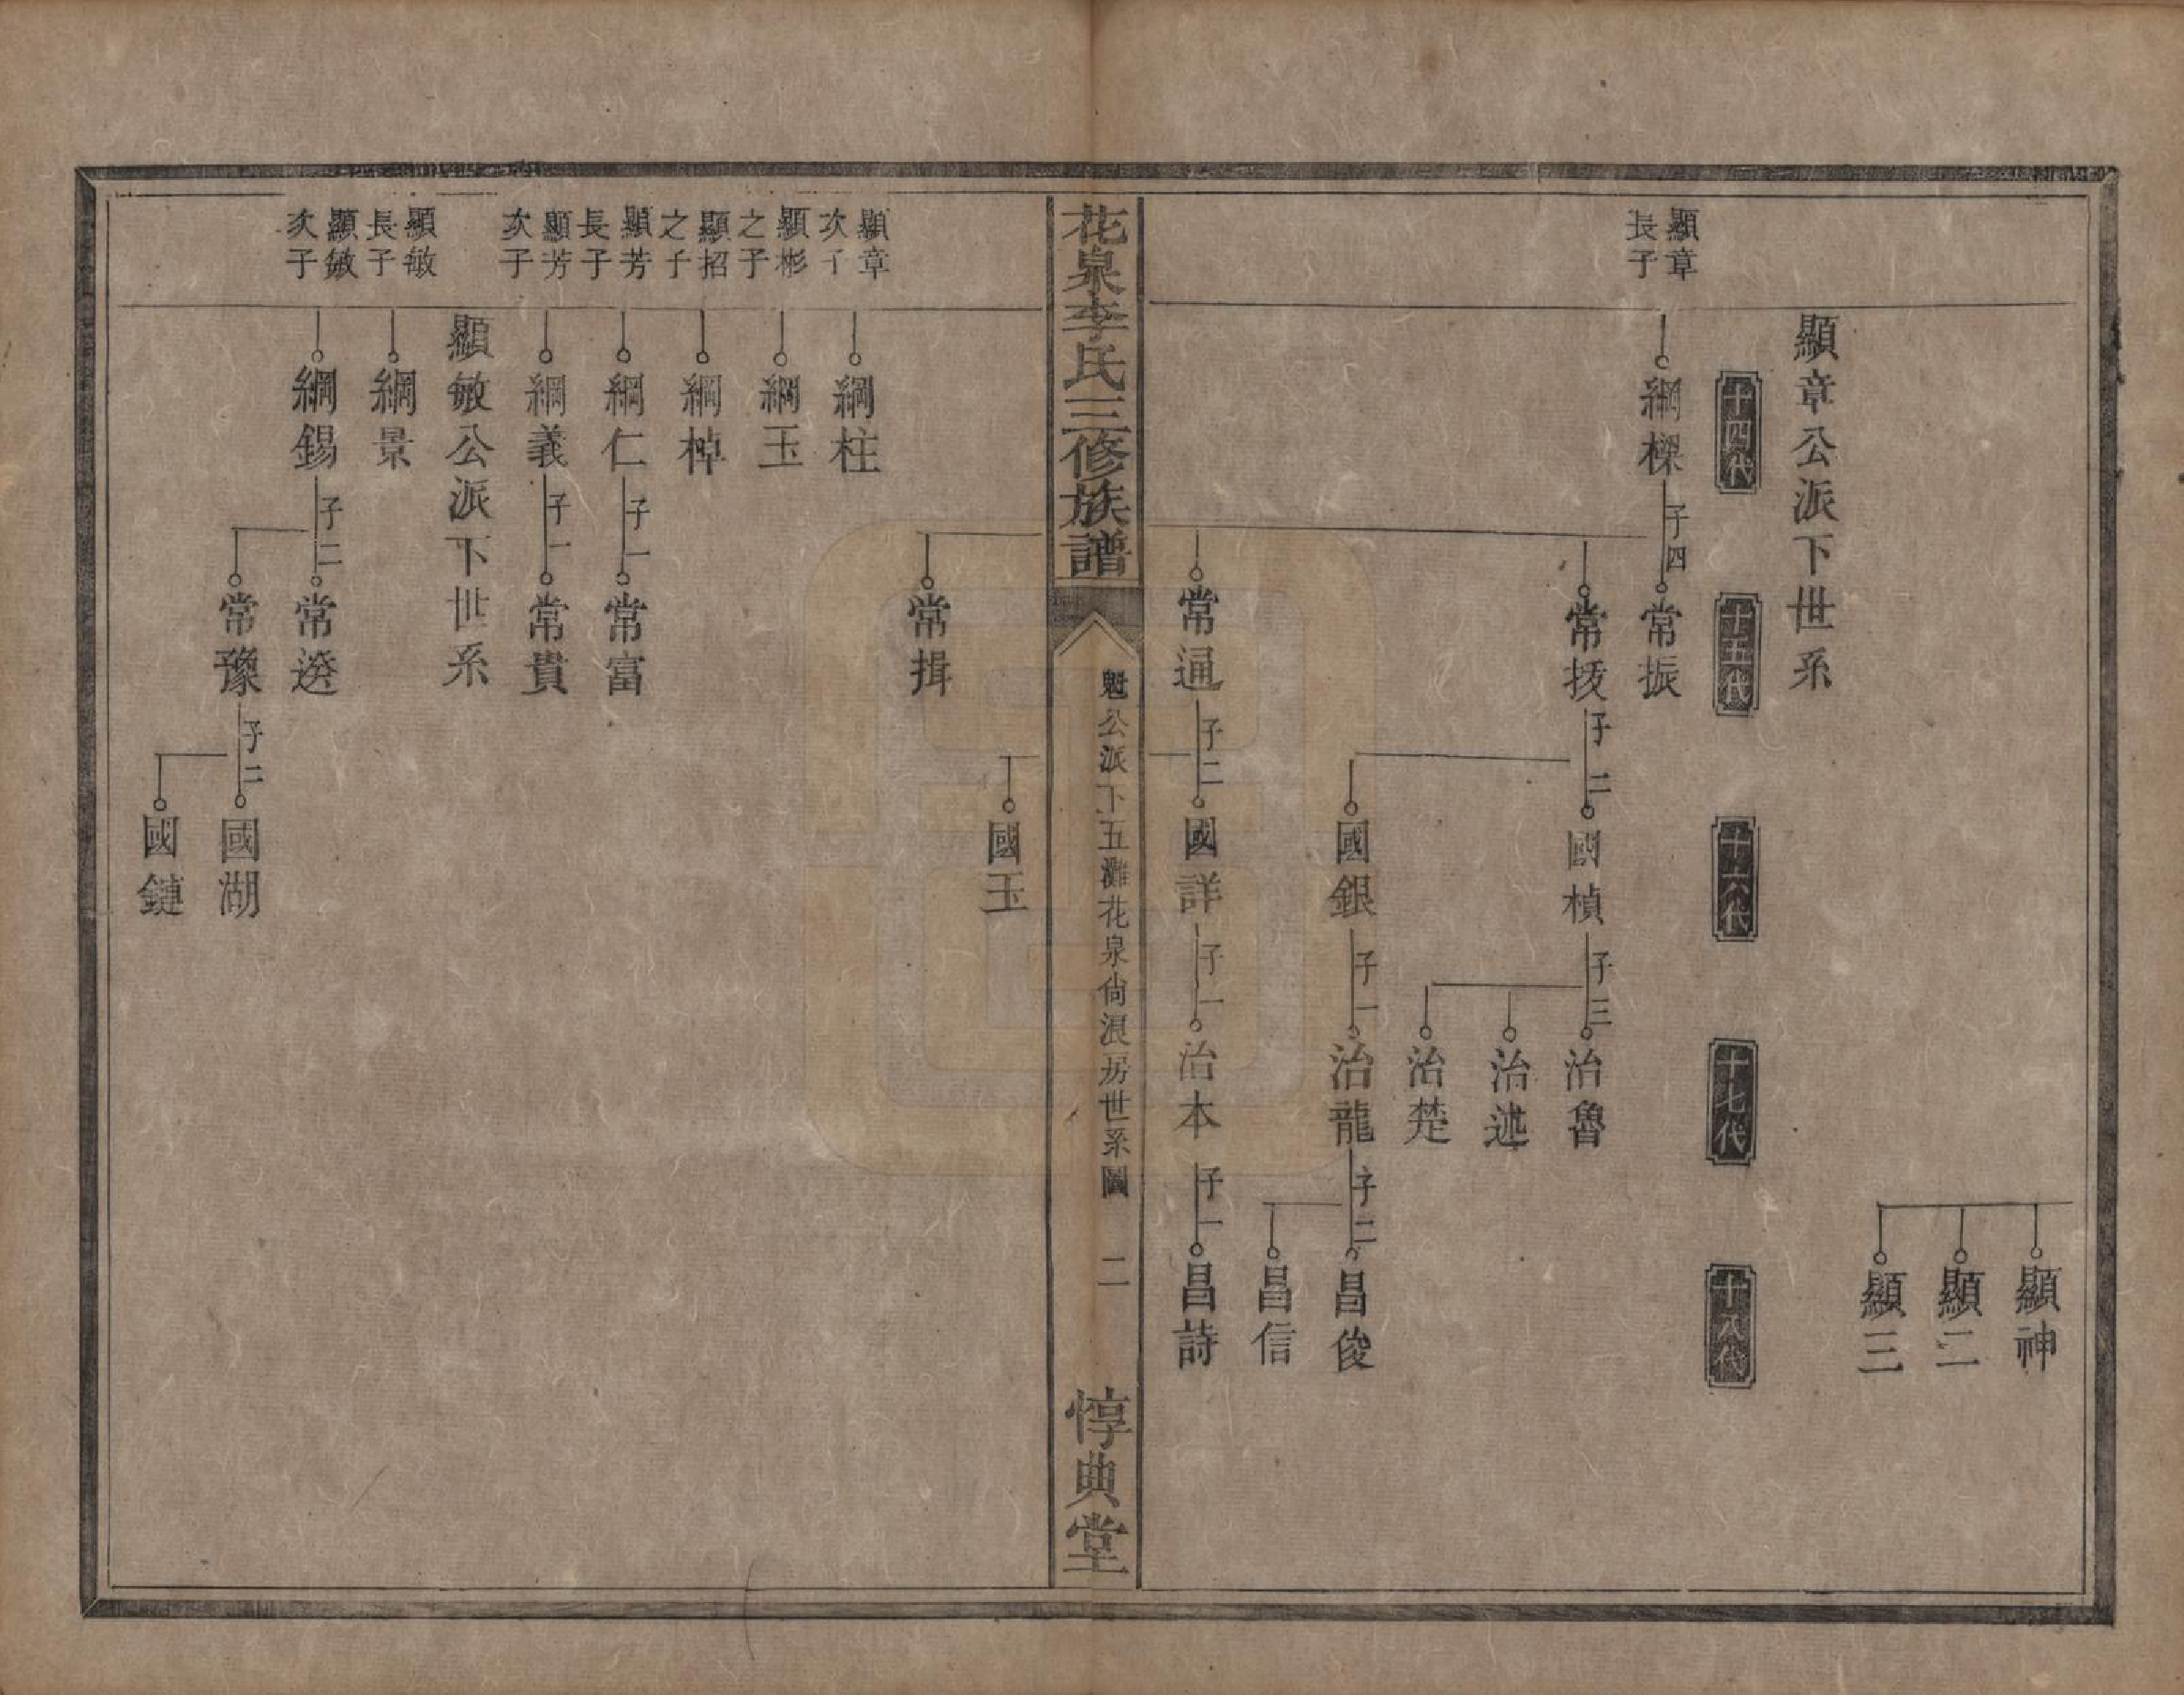 顯神
顯二
顯三
顯章公派下世系
十四代
十五代
十六代
十七代
十八代
顯章
長子
綱樑
子四
常振
常拔
子二
國楨
子三
治魯
治述
治楚
國銀
子一
治龍
子二
昌俊
昌信
常通
子二
國詳
子一
治本
子一
昌詩
花泉李氏三修族譜
魁公派下五灘花泉尙浪房世系圖
二
惇典堂
國玉
常揖
顯章
次子
綱柱
顯彬
之子
綱玉
顯招
之子
綱棹
顯芳
長子
綱仁
子一
常富
顯芳
次子
綱義
子一
常貴
顯敏公派下世系
顯敏
長子
綱景
顯敏
次子
綱錫
子二
常遜
常豫
子二
國湖
國鏈